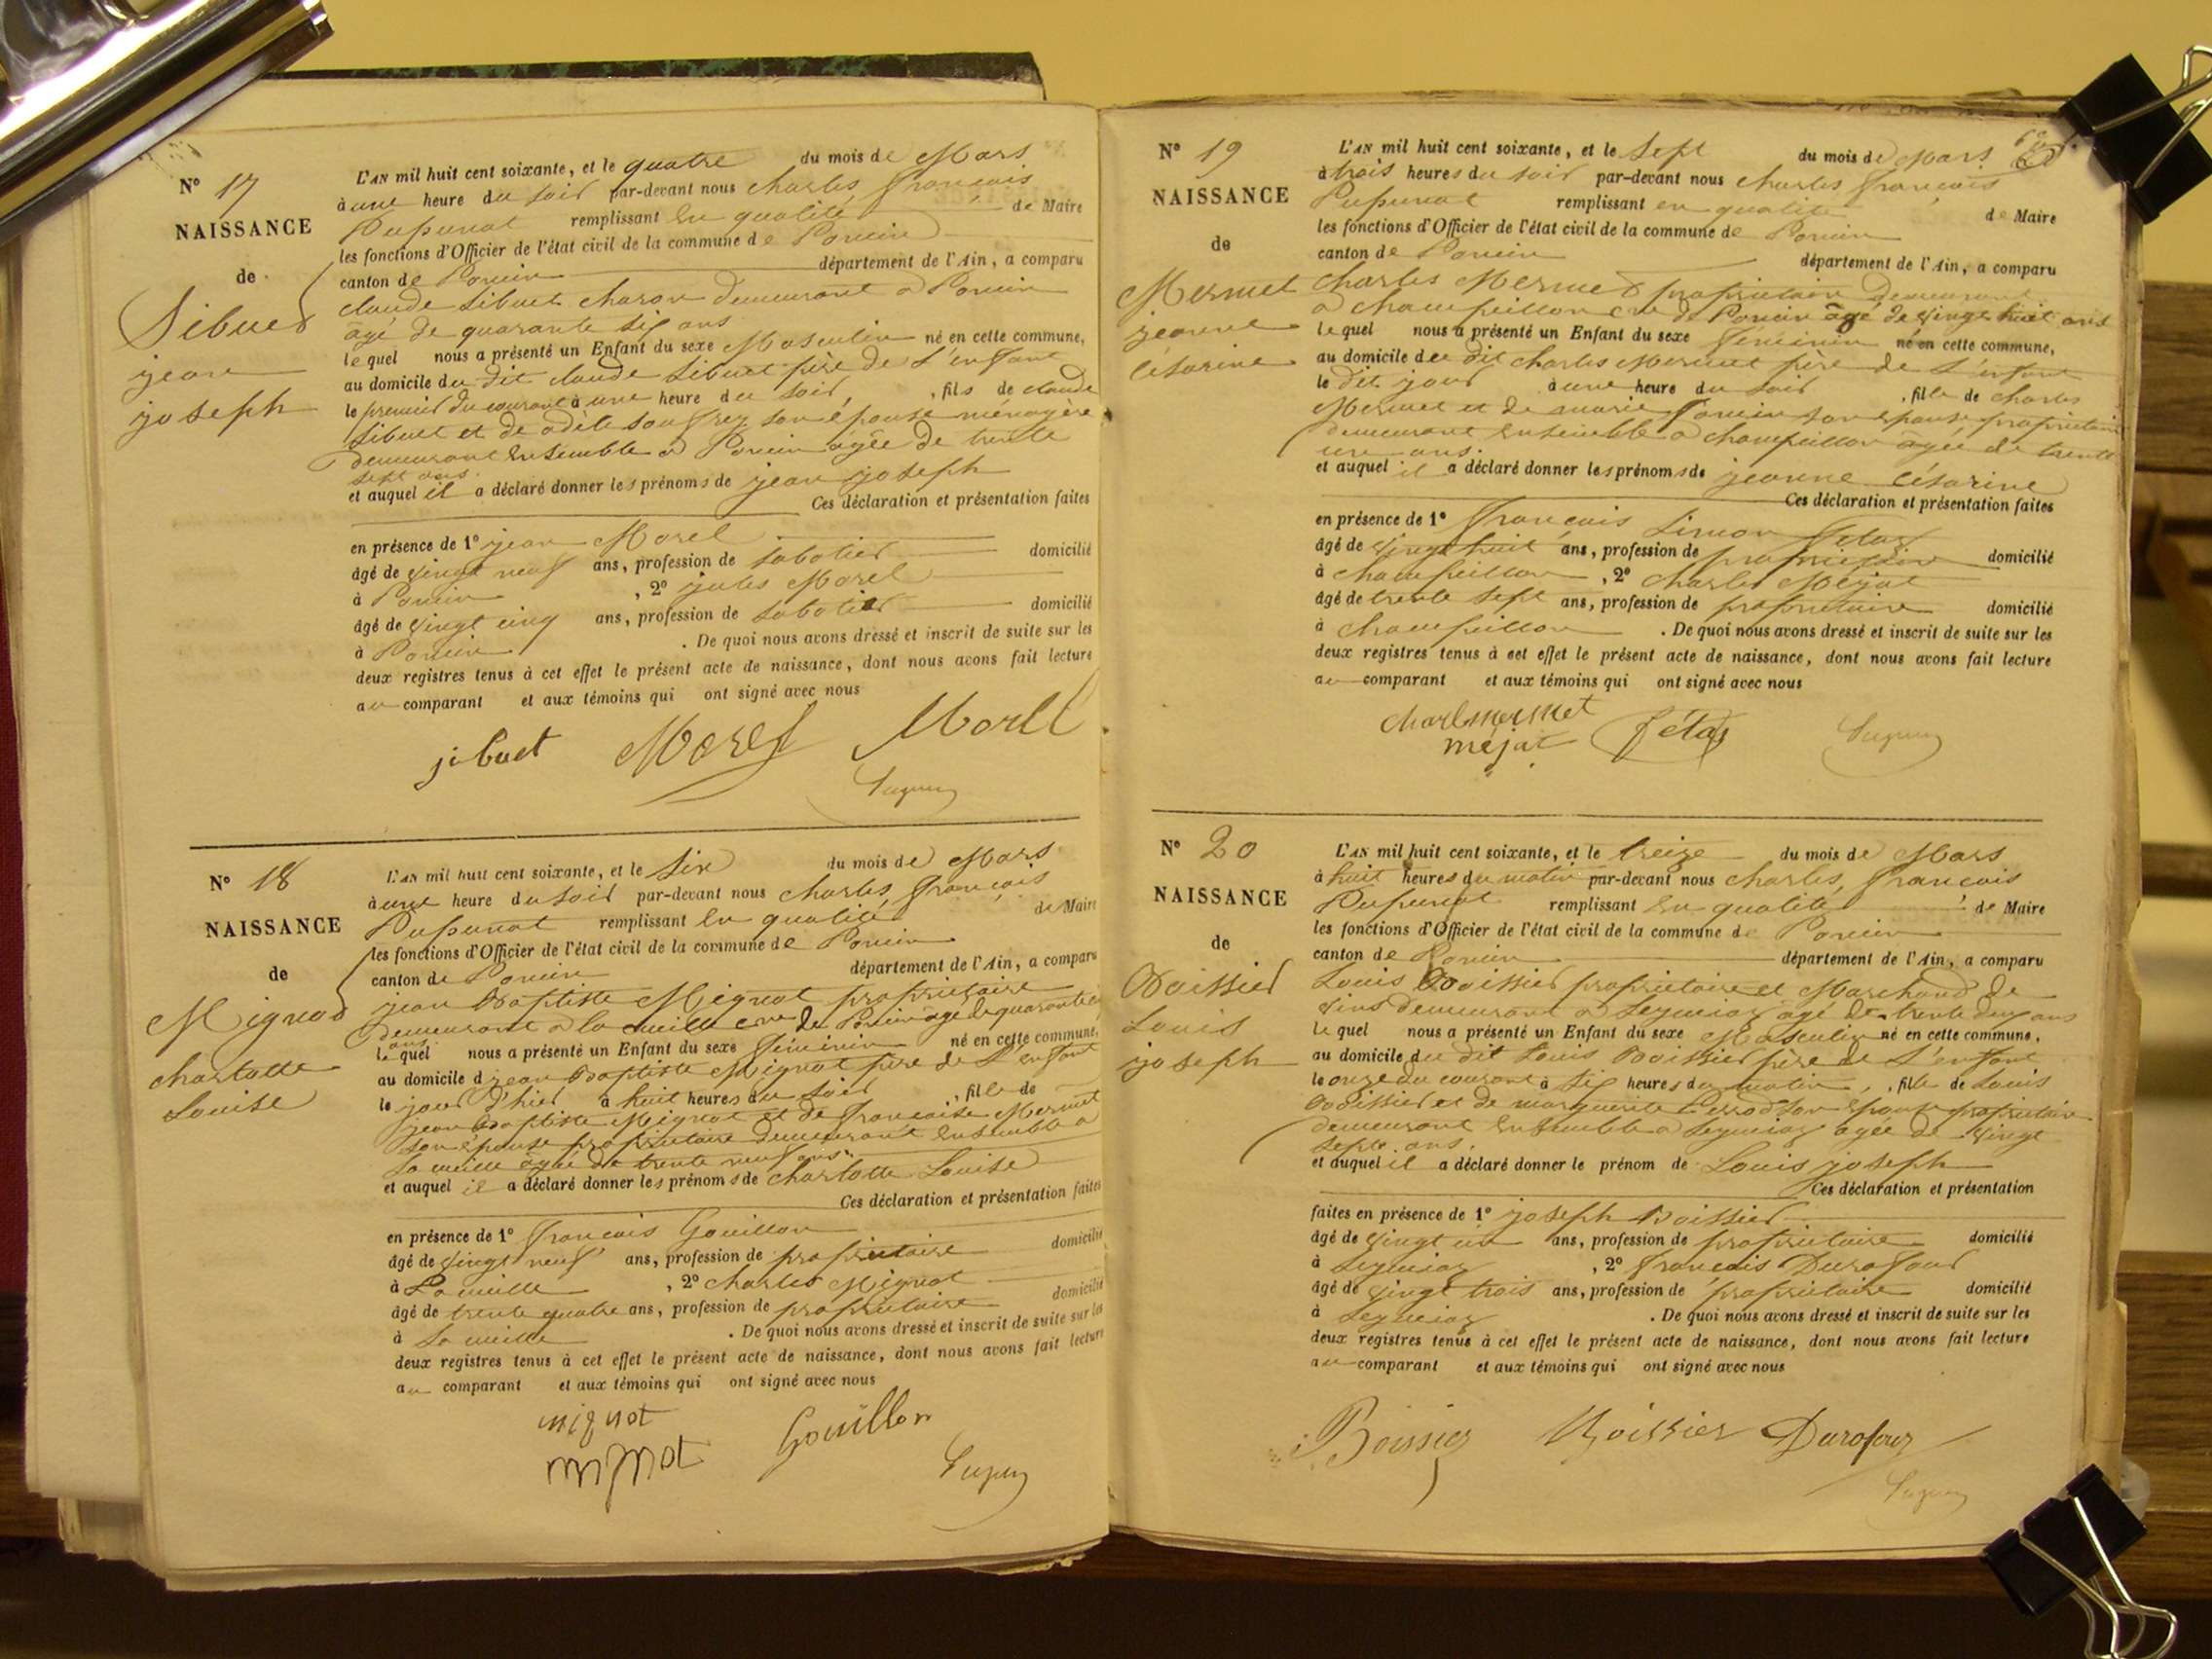 N° 17
NAISSANCE
de
Sibuet
jean
joseph
L'AN mil huit cent soixante, et le quatre du mois de Mars
à une heure du soir par-devant nous charles françois
Pupunat remplissant en qualité de Maire
les fonctions d'Officier de l'état civil de la commune de Poncin
canton de Poncin département de l'Ain, a comparu
claude Sibuet charon demeurant à Poncin
âgé de quarante six ans
lequel nous a présenté un Enfant du sexe Masculin né en cette commune,
au domicile du dit claude Sibuet père de l'enfant
le premier du courant à une heure du soir, fils de claude
Sibuet et de adèle son épouse ménagère
demeurant ensemble à Poncin agée de trente
sept ans.
et auquel il a déclaré donner les prénoms de jean joseph
Ces déclaration et présentation faites
en présence de 1° jean Morel
âgé de vingt neuf ans, profession de sabotier domicilié
à Poncin, 2° jules Morel
âgé de vingt cinq ans, profession de sabotier domicilié
à Poncin. De quoi nous avons dressé et inscrit de suite sur les
deux registres tenus à cet effet le présent acte de naissance, dont nous avons fait lecture
au comparant et aux témoins qui ont signé avec nous
sibuet Morel Morel
N° 18
NAISSANCE
de
Mignot
charlotte
Louise
L'AN mil huit cent soixante, et le six du mois de Mars
à une heure du soir par-devant nous charles françois
Pupunat remplissant en qualité de Maire
les fonctions d'Officier de l'état civil de la commune de Poncin
canton de Poncin département de l'Ain, a comparu
jean Baptiste Mignot propriétaire
demeurant à la cueille cne de Poncin agé de quarante
ans.
lequel nous a présenté un Enfant du sexe féminin né en cette commune,
au domicile d jean Baptiste Mignot père de l'enfant
le jour d'hier à huit heures du soir, fille de
jean Baptiste Mignot et de françoise Mermet
son épouse propriétaire demeurant ensemble à
La cueille âgée de trente neuf ans.
et auquel il a déclaré donner les prénoms de charlotte Louise
Ces déclaration et présentation faites
en présence de 1° françois Gouillon
âgé de vingt neuf ans, profession de propriétaire domicilié
à La cueille, 2° charles Mignot
âgé de trente quatre ans, profession de propriétaire domicilié
à La cueille. De quoi nous avons dressé et inscrit de suite sur les
deux registres tenus à cet effet le présent acte de naissance, dont nous avons fait lecture
au comparant et aux témoins qui ont signé avec nous
mignot Gouillon
mignot
N° 19
NAISSANCE
de
Mermet
jeanne
césarine
L'AN mil huit cent soixante, et le sept du mois de Mars
à trois heures du soir par-devant nous charles françois
Pupunat remplissant en qualité de Maire
les fonctions d'Officier de l'état civil de la commune de Poncin
canton de Poncin département de l'Ain, a comparu
charles Mermet propriétaire demeurant
à champeillon cne de Poncin âgé de vingt huit ans
lequel nous a présenté un Enfant du sexe féminin né en cette commune,
au domicile du dit charles Mermet père de l'enfant
le dit jour à une heure du soir, fille de charles
Mermet et de marie son épouse propriétaire
demeurant ensemble à champeillon agée de trente
une ans.
et auquel il a déclaré donner les prénoms de jeanne césarine
Ces déclaration et présentation faites
en présence de 1° françois Simon fétas
âgé de vingt huit ans, profession de propriétaire domicilié
à champeillon, 2° charles Méjat
âgé de trente sept ans, profession de propriétaire domicilié
à champeillon. De quoi nous avons dressé et inscrit de suite sur les
deux registres tenus à cet effet le présent acte de naissance, dont nous avons fait lecture
au comparant et aux témoins qui ont signé avec nous
charl mermet
méjat fétas
N° 20
NAISSANCE
de
Boissier
Louis
joseph
L'AN mil huit cent soixante, et le treize du mois de Mars
à huit heures du matin par-devant nous charles, françois
Pupunat remplissant en qualité de Maire
les fonctions d'Officier de l'état civil de la commune de Poncin
canton de Poncin département de l'Ain, a comparu
Louis Boissier propriétaire et Marchand de
vins demeurant à Leymiaz âgé de trente deux ans
lequel nous a présenté un Enfant du sexe Masculin né en cette commune,
au domicile du dit Louis Boissier père de l'enfant
le onze du courant à six heures du matin, fille de Louis
Boissier et de marguerite Perrod son épouse propriétaire
demeurant ensemble à Leymiaz agée de vingt
sept ans.
et auquel il a déclaré donner le prénom de Louis joseph
Ces déclaration et présentation
faites en présence de 1° joseph Boissier
âgé de vingt un ans, profession de propriétaire domicilié
à Leymiaz, 2° françois Durafour
âgé de vingt trois ans, profession de propriétaire domicilié
à Leymiaz. De quoi nous avons dressé et inscrit de suite sur les
deux registres tenus à cet effet le présent acte de naissance, dont nous avons fait lecture
au comparant et aux témoins qui ont signé avec nous
Boissier Boissier Durafour